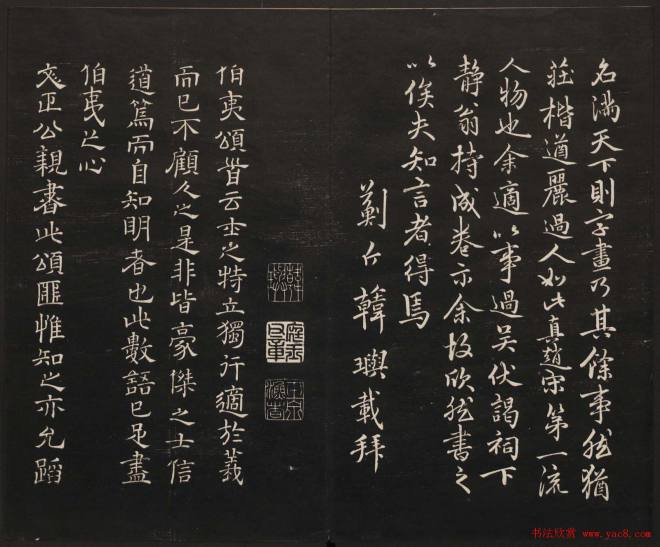 名滿天下則字畫乃其餘事然猶
莊楷遒麗過人如此真趙宋第一流
人物也余適以事過吴伏謁祠下
靜翁持成卷示余故欣然書之
以俟夫知言者得焉
薊丘韓璵載拜
伯夷頌首云士之特立獨行適於義
而已不顧人之是非皆豪傑之士信
道篤而自知明者也此數語已足盡
伯夷之心
文正公親書此頌匪惟知之亦允蹈
书法欣赏 www.yac8.com